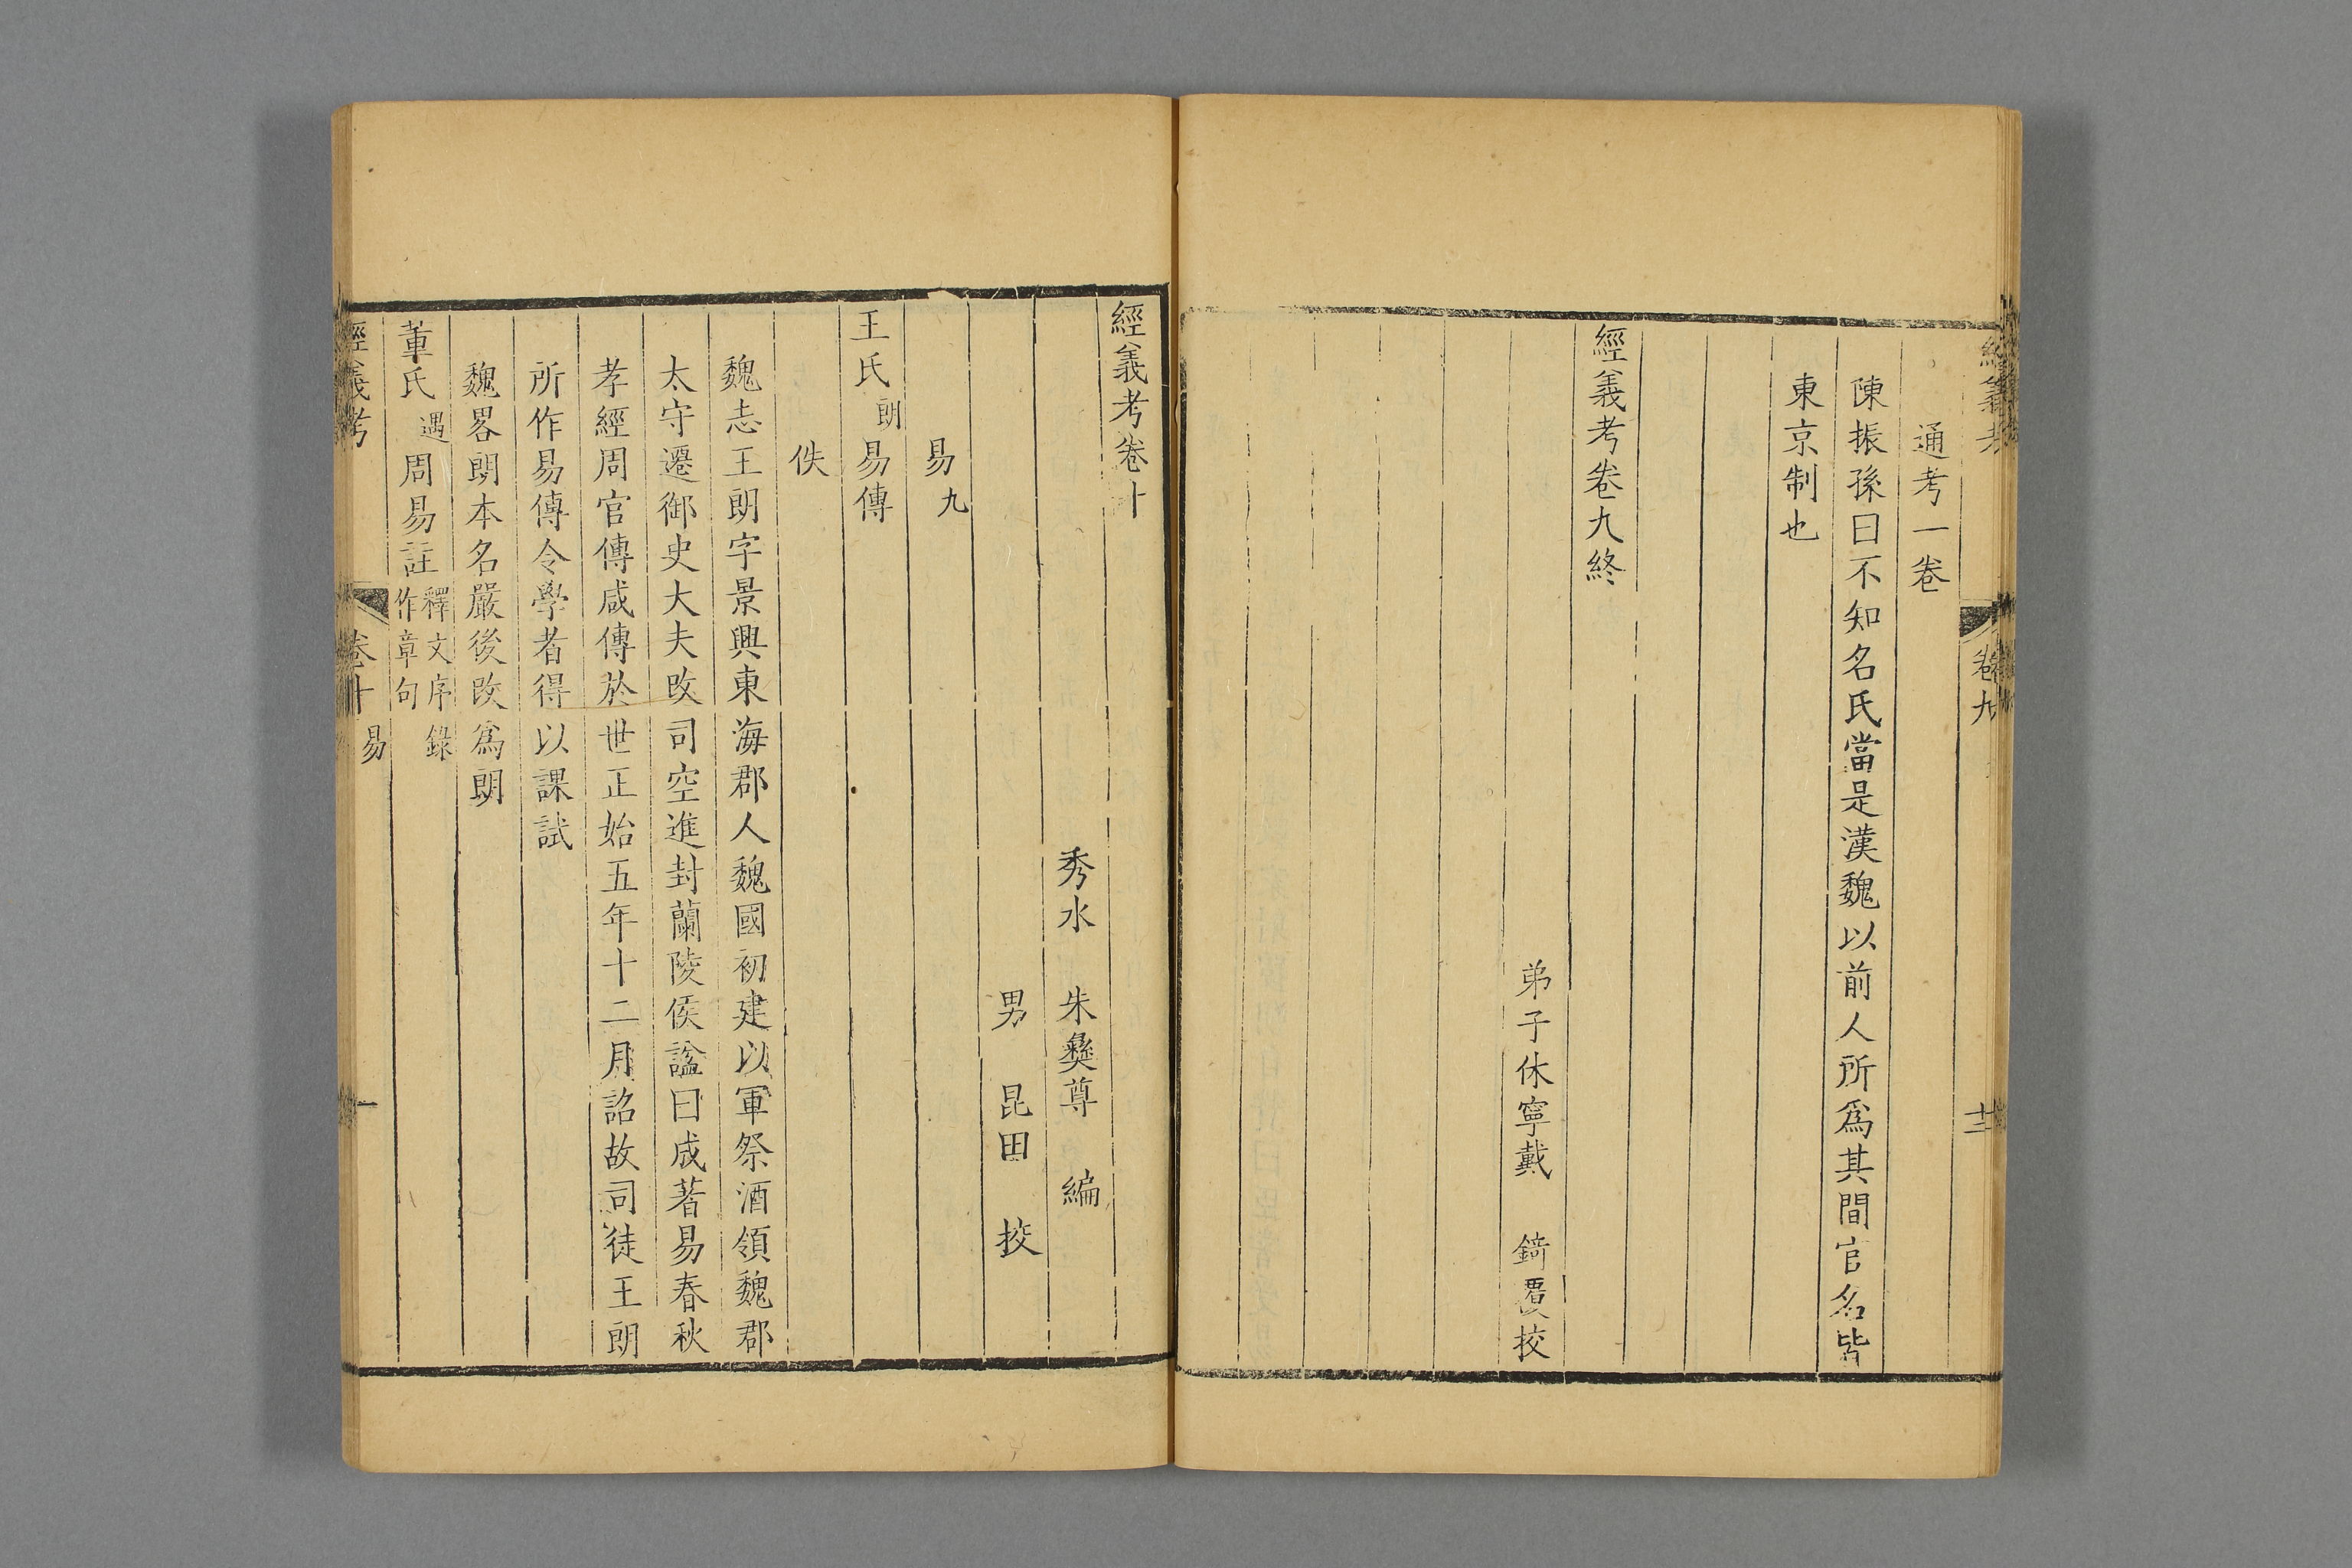 經義考
卷九
十三
通考一卷
陳振孫曰不知名氏當是漢魏以前人所爲其間官名皆
東京制也
經義考卷九終
弟子休寧戴 錡覆挍
經義考卷十
秀水 朱彝尊 編
男 昆田 挍
易九
王氏朗易傳
佚
魏志王朗字景興東海郡人魏國初建以軍祭酒領魏郡
太守遷御史大夫改司空進封蘭陵侯諡曰成著易春秋
孝經周官傳咸傳於世正始五年十二月詔故司徒王朗
所作易傳令學者得以課試
魏畧朗本名嚴後改爲朗
董氏遇周易註釋文序錄作章句
經義考
卷十
易
一